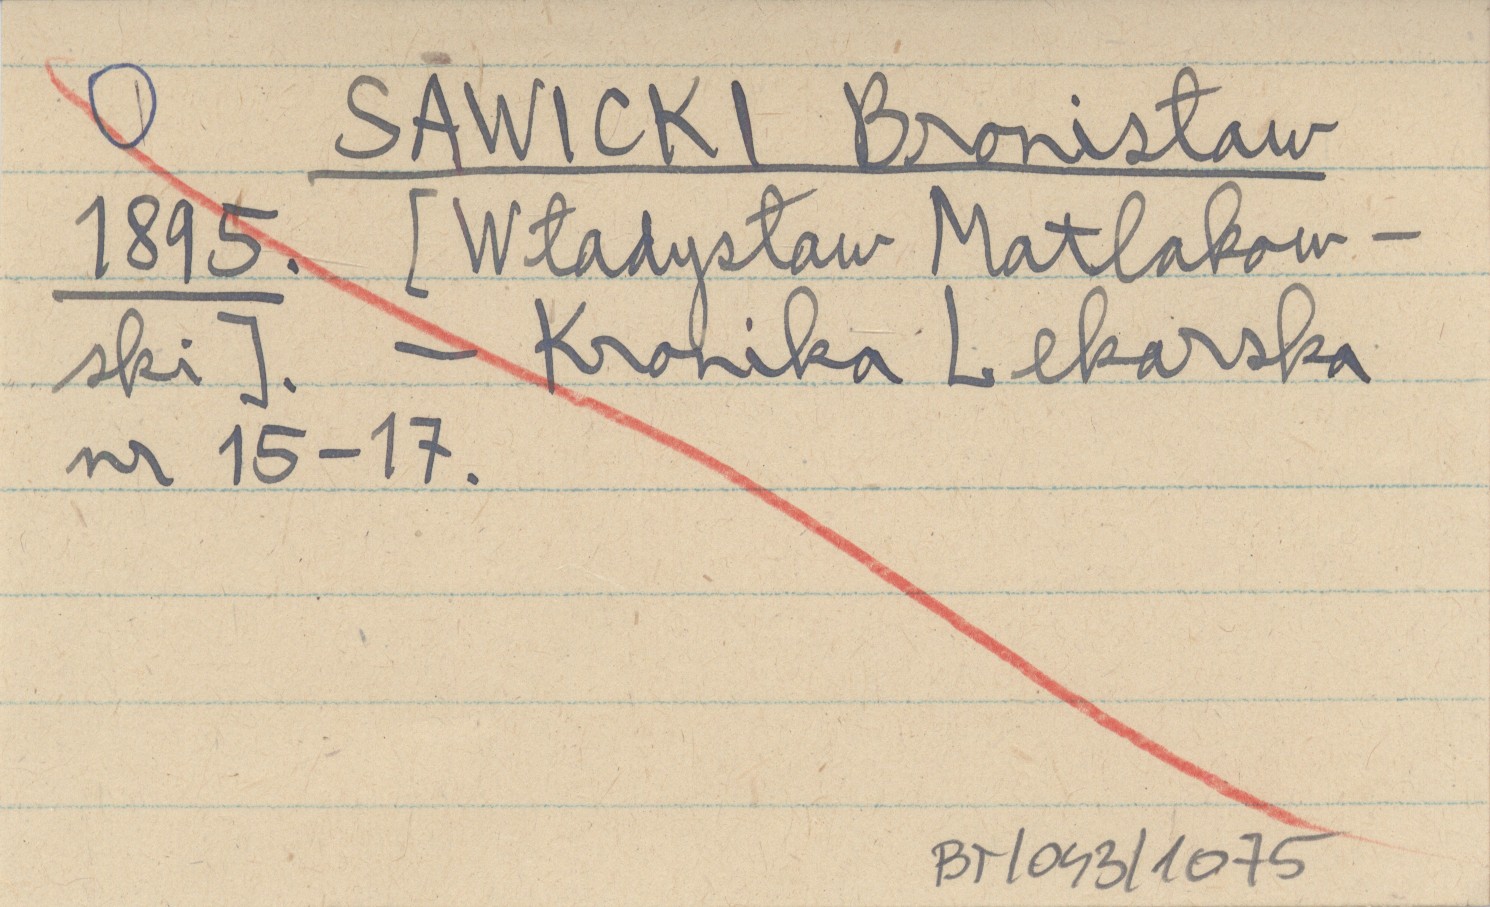 SAWICKI Bronisław
1895. [Władysław Matlakow-
ski]. — Kronika Lekarska
nr 15-17.
BT/043/1075